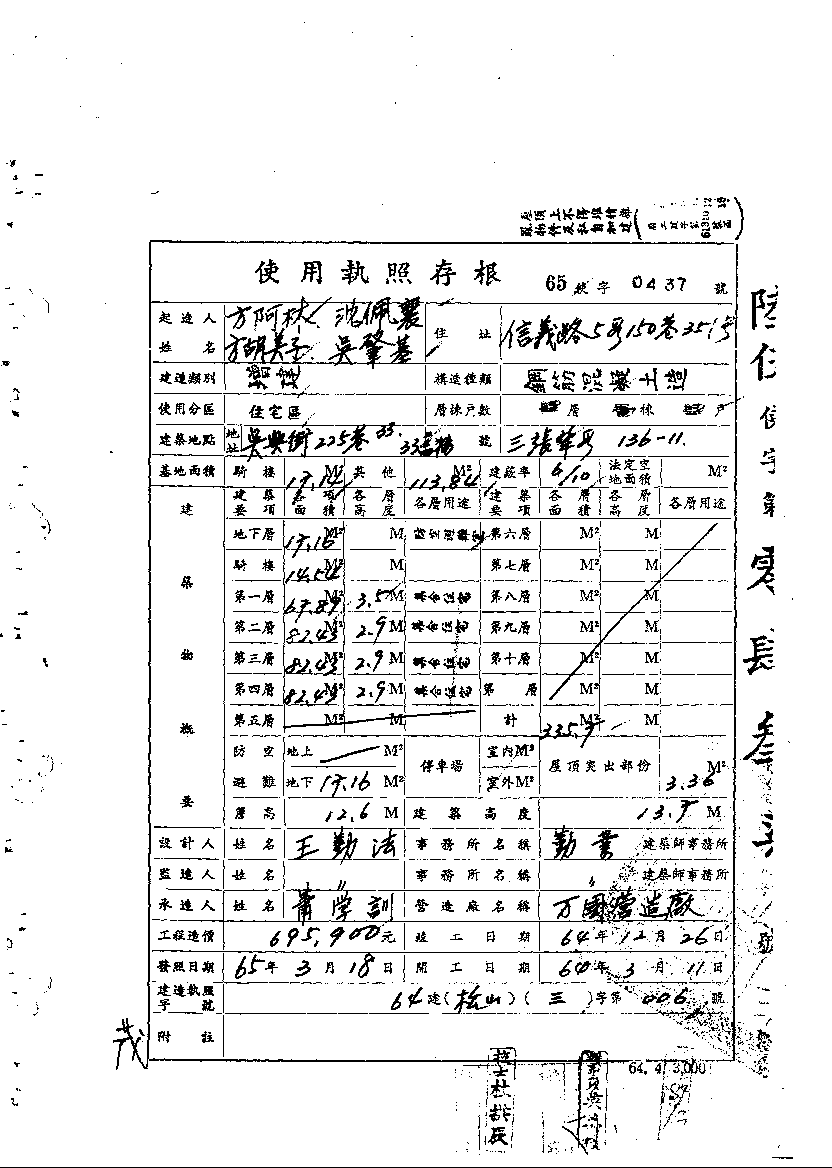 使用執照存根 65 使字 0437 號
起造人姓名 方阿林、沈佩襄 方胡美玉、吳肇基 住址 信義路5段150巷351號
建造類別 增建 構造種類 鋼筋混凝土造
使用分區 住宅區 層棟戶數 層 棟 戶
建築地點 地址 吳興街225巷33. 號 三張犂段 136-11.
基地面積 騎樓 17.14 M² 其他 113.84 M² 建蔽率 6/10 法定空地面積 M²
建築物概要
建築要項 各項面積 各層高度 各層用途 建築要項 各層面積 各層高度 各層用途
地下層 17.16 M² M 第六層 M² M
騎樓 14.54 M² M 第七層 M² M
第一層 67.89 M² 3.5 M 集合住宅 第八層 M² M
第二層 82.43 M² 2.9 M 集合住宅 第九層 M² M
第三層 82.43 M² 2.9 M 集合住宅 第十層 M² M
第四層 82.43 M² 2.9 M 集合住宅 第 層 M² M
第五層 M² M 計 M² M
防空避難 地上 M² 停車場 室內M² 屋頂突出部份 3.36 M²
地下 17.16 M² 室外M²
簷高 12.6 M 建築高度 13.5 M
設計人 姓名 王勤法 事務所名稱 勤業 建築師事務所
監造人 姓名 〃 事務所名稱 〃 建築師事務所
承造人 姓名 蕭學訓 營造廠名稱 万國營造廠
工程造價 695,900元 竣工日期 64年12月26日
發照日期 65年3月18日 開工日期 64年3月11日
建造執照字號 64建(松山)(三)字第006號
附註
64. 4 3,000